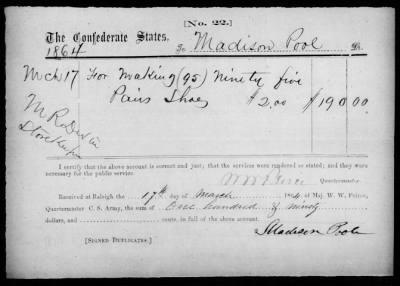 [No. 22.]
The Confederate States,
1864 To Madison Pool Dr.
Mch 17 For Making (95) Ninety five
Pairs Shoes $2.00 $190 00
I certify that the above account is correct and just; that the services were rendered as stated; and they were
necessary for the public service.
Quartermaster.
Received at Raleigh the 17th day of March 1864, of Maj. W. W. Peirce,
Quartermaster C. S. Army, the sum of One hundred & ninety
dollars, and cents, in full of the above account.
Madison Poole
[SIGNED DUPLICATES.]